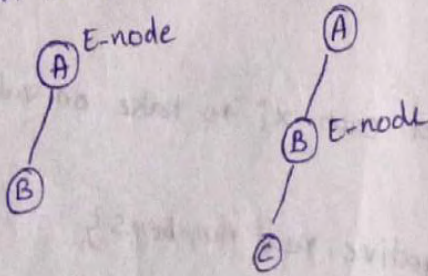 A E-node
B
A
B E-node
C